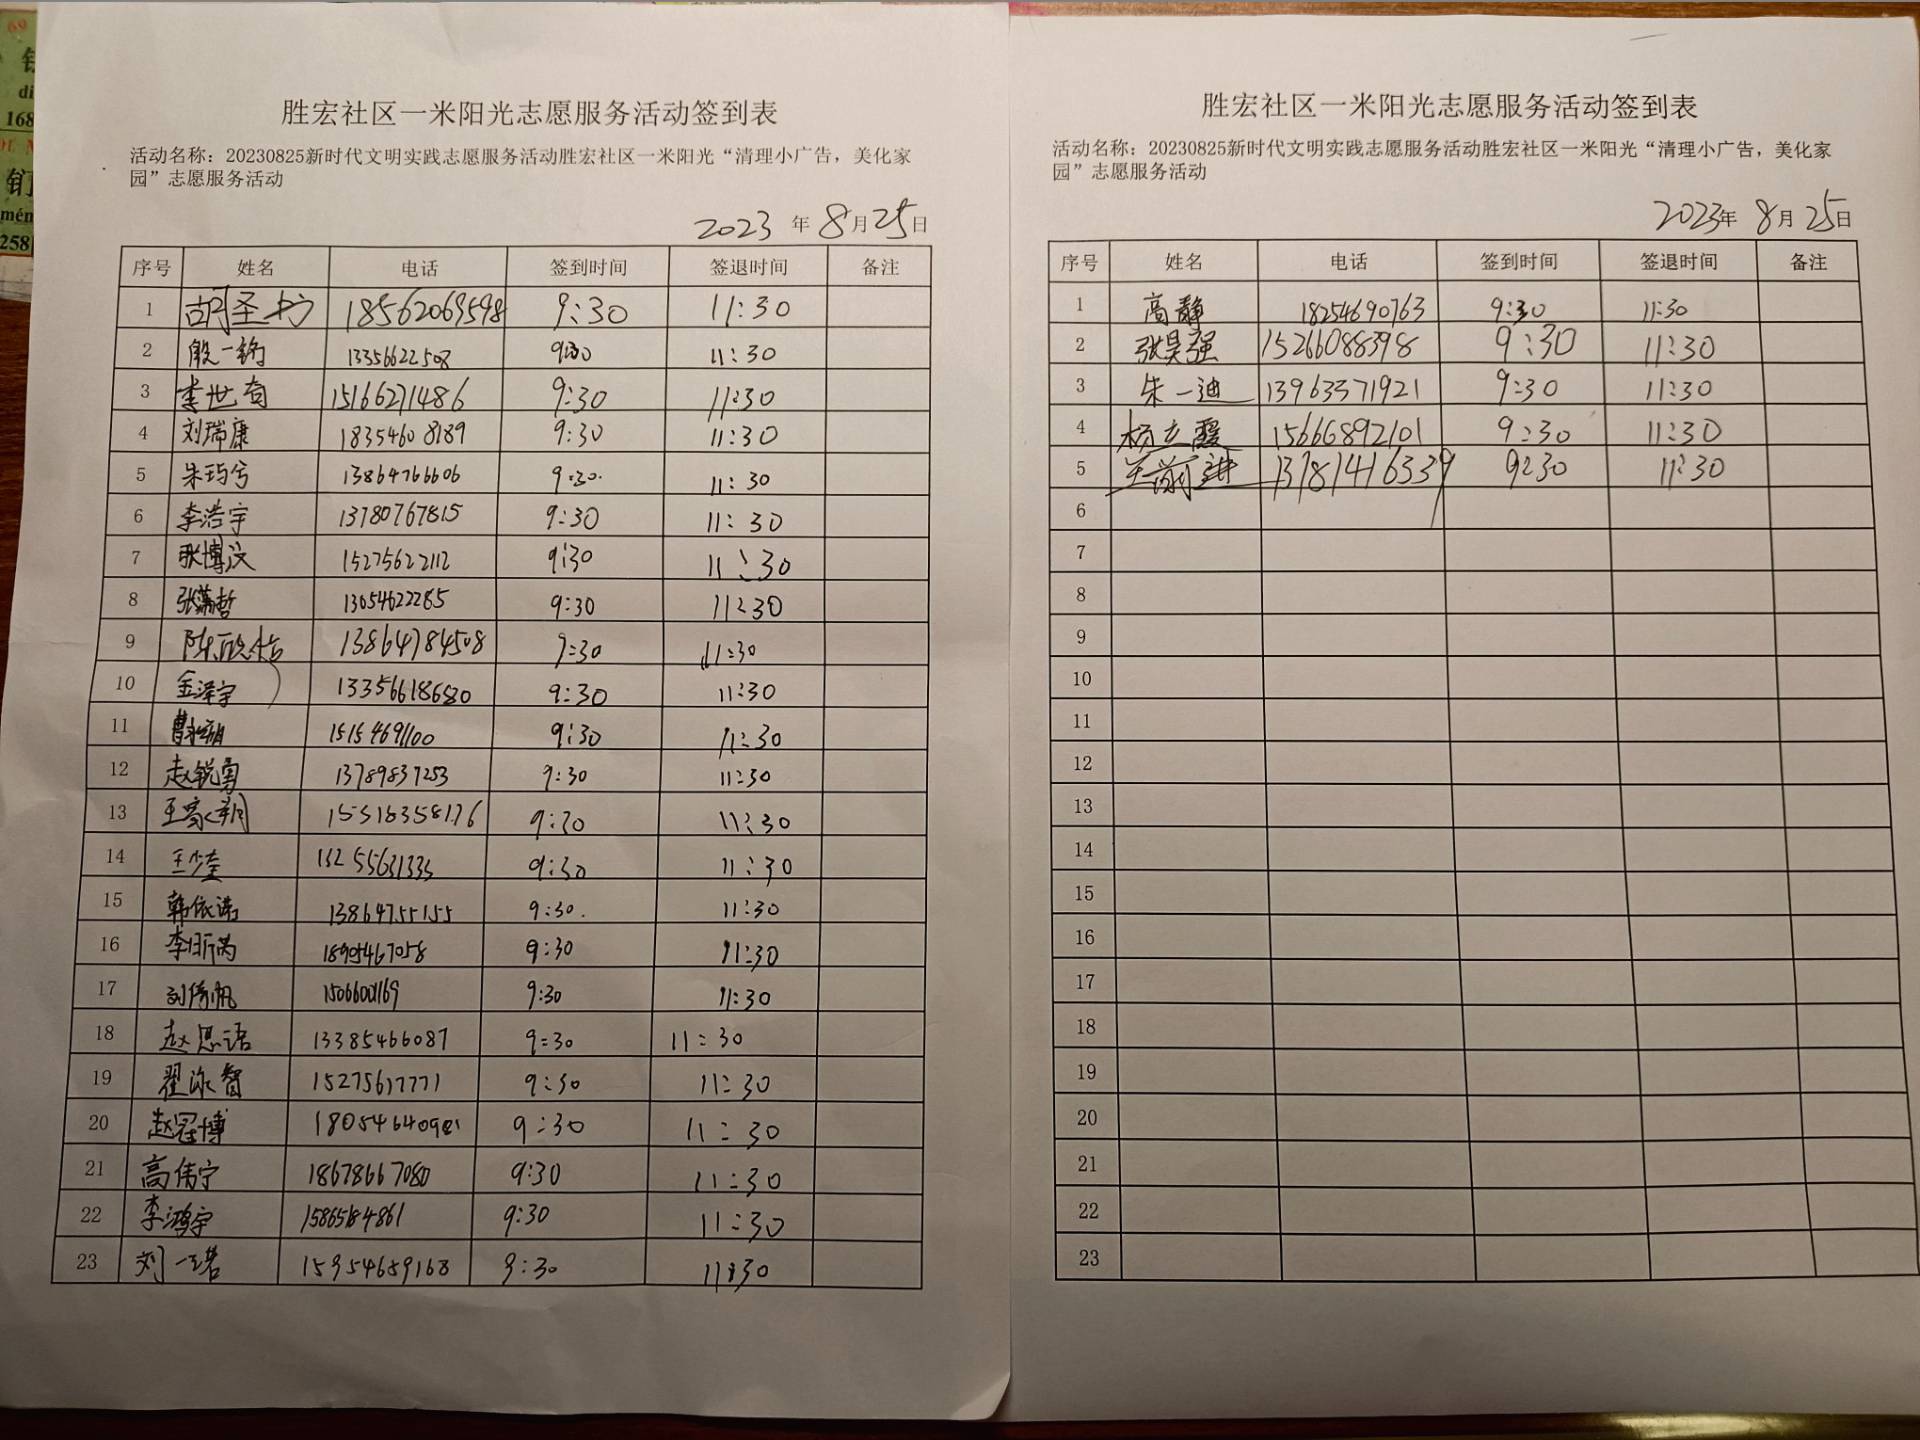 胜宏社区一米阳光志愿服务活动签到表
活动名称：20230825新时代文明实践志愿服务活动胜宏社区一米阳光“清理小广告，美化家
园”志愿服务活动
2023 年 8月25日
序号 姓名 电话 签到时间 签退时间 备注
1 18562069598 9:30 11:30
2 殷一钧 13356622508 9:30 11:30
3 李世奇 15166271486 9:30 11:30
4 刘瑞康 18354608189 9:30 11:30
5 朱玙兮 13864766606 9:30 11:30
6 李浩宇 13780767815 9:30 11:30
7 张博汶 15275622112 9:30 11:30
8 13054622285 9:30 11:30
9 陈欣怡 13864784508 9:30 11:30
10 金泽宇 13356618680 9:30 11:30
11 15154691100 9:30 11:30
12 赵锐勇 13789837253 9:30 11:30
13 9:30 11:30
14 王少奎 13255631335 9:30 11:30
15 韩依诺 13864755155 9:30 11:30
16 李昕芮 18905467058 9:30 11:30
17 9:30 11:30
18 赵思语 13385466087 9:30 11:30
19 15275617771 9:30 11:30
20 赵冠博 9:30 11:30
21 高伟宁 18678667080 9:30 11:30
22 李鸿宇 15865184861 9:30 11:30
23 刘一诺 15954659168 9:30 11:30
胜宏社区一米阳光志愿服务活动签到表
活动名称：20230825新时代文明实践志愿服务活动胜宏社区一米阳光“清理小广告，美化家
园”志愿服务活动
2023年 8月25日
序号 姓名 电话 签到时间 签退时间 备注
1 高静 18254690763 9:30 11:30
2 张昊强 15266088398 9:30 11:30
3 朱一迪 13963371921 9:30 11:30
4 杨立霞 15666892101 9:30 11:30
5 王前进 13781416339 9:30 11:30
6
7
8
9
10
11
12
13
14
15
16
17
18
19
20
21
22
23
69
di
168
mén
258